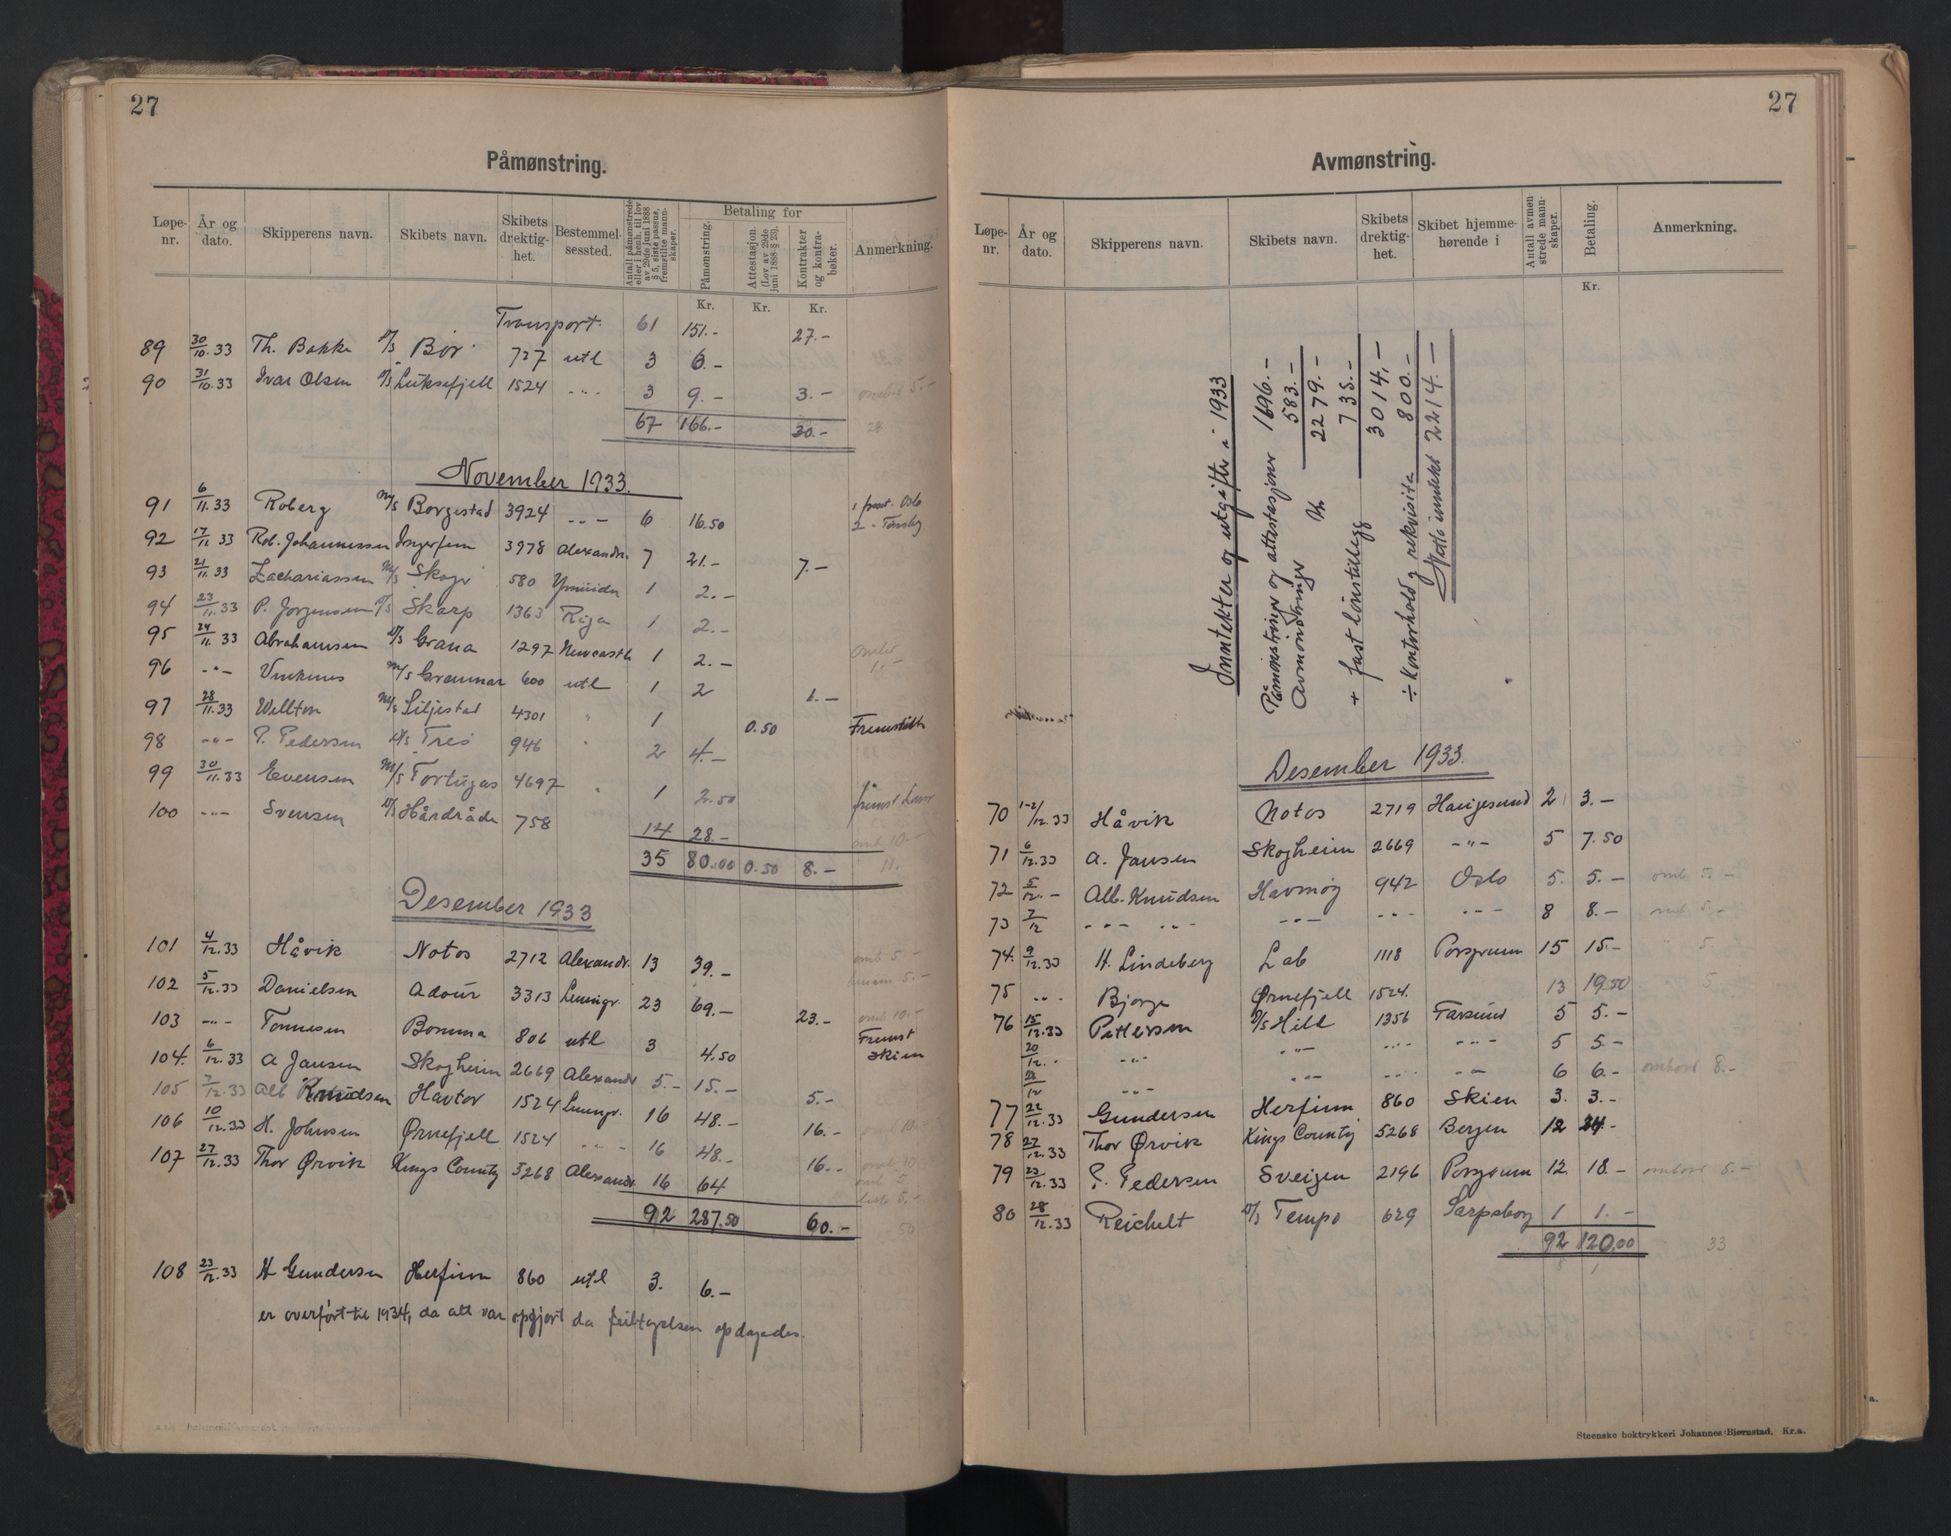 27
Påmønstring.
Løpe-nr. År og dato. Skipperens navn. Skibets navn. Skibets drektig-het. Bestemmel-sessted. Antall påmønstrede eller i henh. til lov av 29de juni 1888 § 5, siste passus, fremstilte mann-skaper. Betaling for Påmønstring. Attestasjon. (Lov av 29de juni 1888 § 23). Kontrakter og kontra-bøker. Anmerkning.
Kr. Kr. Kr.
Transport. 61 151.- 27.-
89 30/10.33 Th. Bakke D/S Bør 727 utl 3 6.-
90 31/10.33 Ivar Olsen D/S Luksefjell 1524 -"- 3 9.- 3.- ombord 5.-
67 166.- 30.- 28
November 1933.
91 6/11.33 Roberg M/S Borgestad 3924 -"- 6 16.50 1 fremst. Oslo
2 - Tønsbg
92 17/11 33 Rob. Johannessen Ingerfem 3978 Alexandr. 7 21.- 7.-
93 21/11.33 Zachariassen M/S Skogr 580 Ymuiden 1 2.-
94 23/11.33 P. Jorgensen D/S Skarp 1363 Riga 1 2.-
95 24/11.33 Abrahamsen D/S Grana 1297 Newcastle 1 2.-
96 -"- Vinkenes M/S Grennar 600 utl 1 2 1.-
97 28/11.33 Wellton M/S Siljestad 4301 " 1 0.50 Fremstillt
98 -"- P. Pedersen D/S Treo 946 " 2 4.-
99 30/11.33 Evensen M/S Tortugas 4697 " 1 2.50
100 -"- Svensen D/S Hårdråde 758 14 28.- omb 10.-
35 80.00 0.50 8.- 11.
Desember 1933
101 4/12.33 Håvik Notos 2712 Alexandr. 13 39.- omb 5.-
102 5/12.33 Danielsen Adour 3313 Leningr. 23 69.- 23.- omb 10.-
103 -"- Tønnesen Bomma 806 utl 3 4.50 Fremst Skien
104. 6/12.33 A Jansen Skogheim 2669 Alexandr 5.- 15.- 5.-
105 7/12.33 Alb Knudsen Havtor 1524 Leningr. 16 48.- 16.-
106 10/12.33 H. Johnsen Ørnefjell 1524 -"- 16 48.- 16.-
107 27/12.33 Thor Ørvik Kings County 5268 Alexandr. 16 64
92 287.50 60.- 50
108 23/12.33 H Gundersen Herfinn 860 utl 3. 6.-
er overført til 1934, da alt var opgjort da feiltagelsen opdagedes.
27
Avmønstring.
Løpe-nr. År og dato. Skipperens navn. Skibets navn. Skibets drektig-het. Skibet hjemme-hørende i Antall avmøn-strede mann-skaper. Betaling. Anmerkning.
Kr.
Inntekter og utgifter i 1933
Påmønstringer og attestasjoner 1696.-
Avmønstringer 583.-
Kr 2279.-
+ fast lønstillegg 735.-
3014,-
÷ Kontorhold og rekvisita 800.-
Netto inntekt 2214.-
Desember 1933.
70 1-2/12.33 Håvik Notos 2719 Haugesund 2 3.-
71 6/12.33 A. Jansen Skogheim 2669 -"- 5 7.50
72 5/12.- Alb. Knudsen Havmøy 942 Oslo 5. 5.- omb 5.-
73 7/12 -"- -"- -"- -"- -"- 8 8.- omb 5.-
74. 9/12.33 H. Lindeberg Lab 1118 Porsgrunn 15 15.- " 5.-
75 -"- Bjorge Ørnefjell 1524. 13 19.50 " 5.
76 15/12.33 Pettersen D/S Hill 1356 Farsund 5 5.-
20/12.- -"- -"- -"- -"- 5 5.-
-"- -"- -"- -"- 6 6.- ombord 8.-
77 22/12.33 Gundersen Herfinn 860 Skien 3. 3.-
78 27/12.33 Thor Ørvik Kings County 5268 Bergen 12 24.-
79 23/12.33 P. Pedersen Sveigen 2196 Porsgrunn 12. 18.- ombord 5.-
80 28/12.33 Reichelt D/S Tempo 629 Sarpsborg 1 1.-
92 120.00 33
Steenske boktrykkeri Johannes Bjørnstad. Kr.a.